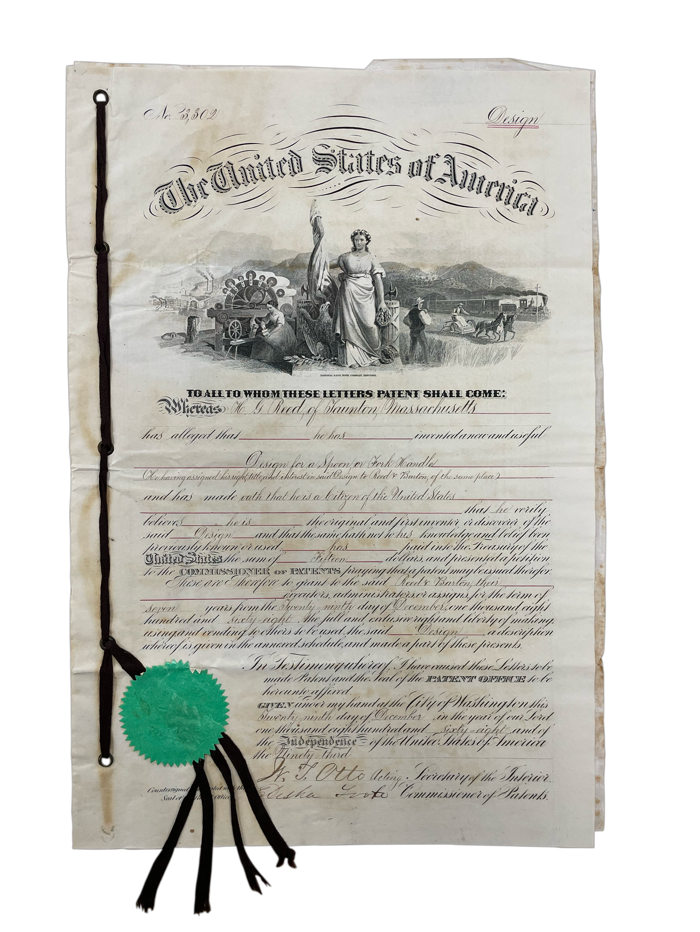 No. 3,302
Design
The United States of America
TO ALL TO WHOM THESE LETTERS PATENT SHALL COME:
Whereas H. G. Reed, of Taunton, Massachusetts
has alleged that he has invented a new and useful
Design for a Spoon or Fork Handle
(he having assigned his right, title and interest in said Design to Reed & Barton, of the same place)
and has made oath that he is a Citizen of the United States
that he verily
believes he is the original and first inventor or discoverer of the
said Design and that the same hath not to his knowledge and belief been
previously known or used has paid into the Treasury of the
United States the sum of Fifteen dollars and presented a petition,
to the COMMISSIONER OF PATENTS, praying that a patent may be issued therefor.
These are Therefore to grant to the said Reed & Barton, their
executors, administrators or assigns for the term of
seven years from the Twenty-ninth day of December, one thousand eight
hundred and sixty-eight the full and exclusive right and liberty of making,
using and vending to others to be used, the said Design a description
whereof is given in the annexed schedule, and made a part of these presents.
In Testimony whereof, I have caused these Letters to be
made Patent and the Seal of the PATENT OFFICE to be
hereunto affixed.
GIVEN under my hand at the City of Washington this
Twenty-ninth day of December in the year of our Lord
one thousand eight hundred and sixty-eight and of
the Independence of the United States of America
the Ninety-third.
W. T. Otto Acting Secretary of the Interior.
Countersigned
Elisha Foote Commissioner of Patents.
Seal of